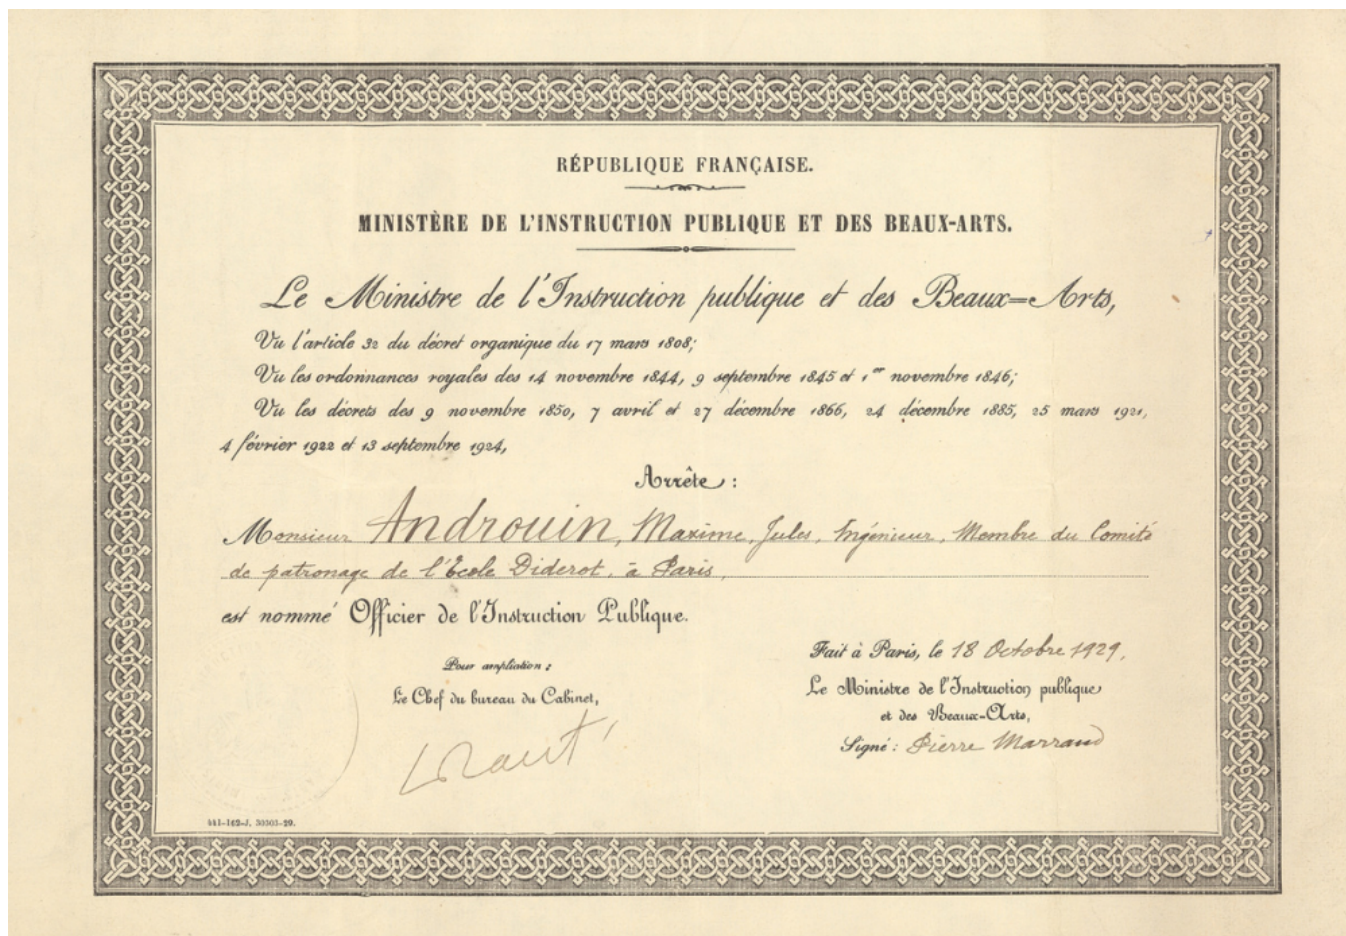 RÉPUBLIQUE FRANÇAISE.
MINISTÈRE DE L'INSTRUCTION PUBLIQUE ET DES BEAUX-ARTS.
Le Ministre de l'Instruction publique et des Beaux=Arts,
Vu l'article 32 du décret organique du 17 mars 1808;
Vu les ordonnances royales des 14 novembre 1844, 9 septembre 1845 et 1er novembre 1846;
Vu les décrets des 9 novembre 1850, 7 avril et 27 décembre 1866, 24 décembre 1885, 25 mars 1921,
4 février 1922 et 13 septembre 1924,
Arrête :
Monsieur Androuin, Maxime, Jules, Ingénieur, Membre du Comité
de patronage de l'Ecole Diderot, à Paris,
est nommé Officier de l'Instruction Publique.
Fait à Paris, le 18 Octobre 1929.
Pour ampliation :
Le Chef du bureau du Cabinet,
Le Ministre de l'Instruction publique
et des Beaux-Arts,
Signé : Pierre Marraud
441-162-J. 30303-29.